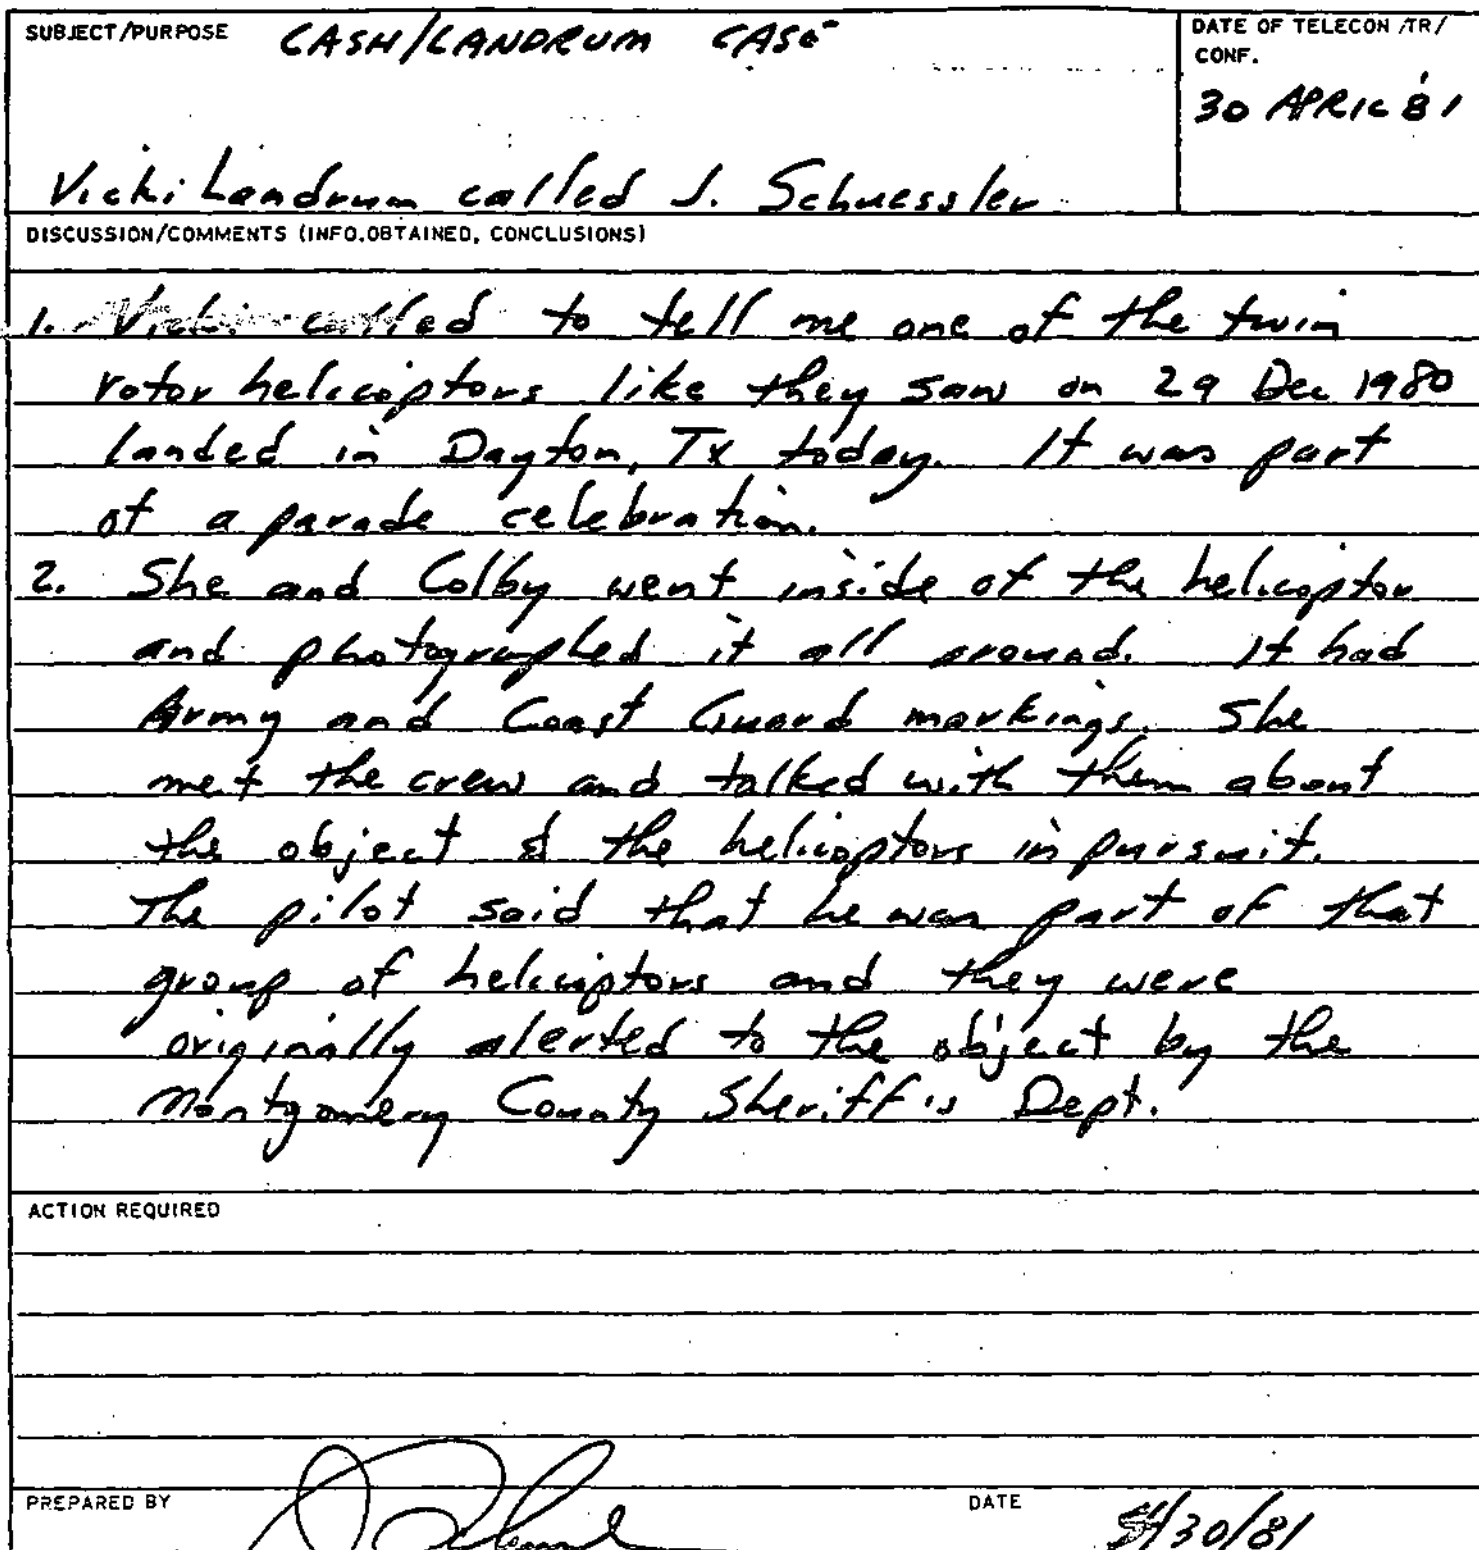 SUBJECT/PURPOSE CASH/LANDRUM CASE
DATE OF TELECON /TR/
CONF.
30 APRIL 81
Vicki Landrum called J. Schuessler
DISCUSSION/COMMENTS (INFO.OBTAINED, CONCLUSIONS)
1. Vicki called to tell me one of the twin
rotor helicoptors like they saw on 29 Dec 1980
landed in Dayton, Tx today. It was part
of a parade celebration.
2. She and Colby went inside of the helicoptor
and photographed it all around. It had
Army and Coast Guard markings. She
met the crew and talked with them about
the object & the helicoptors in pursuit.
The pilot said that he was part of that
group of helicoptors and they were
originally alerted to the object by the
Montgomery County Sheriff's Dept.
ACTION REQUIRED
PREPARED BY
DATE /30/81